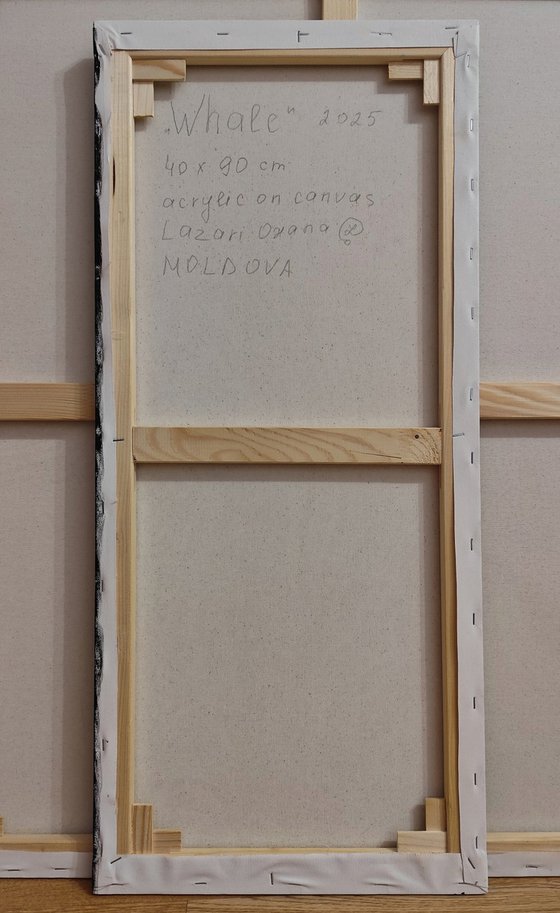 „Whale" 2025
40 x 90 cm
acrylic on canvas
Lazari Oxana
MOLDOVA